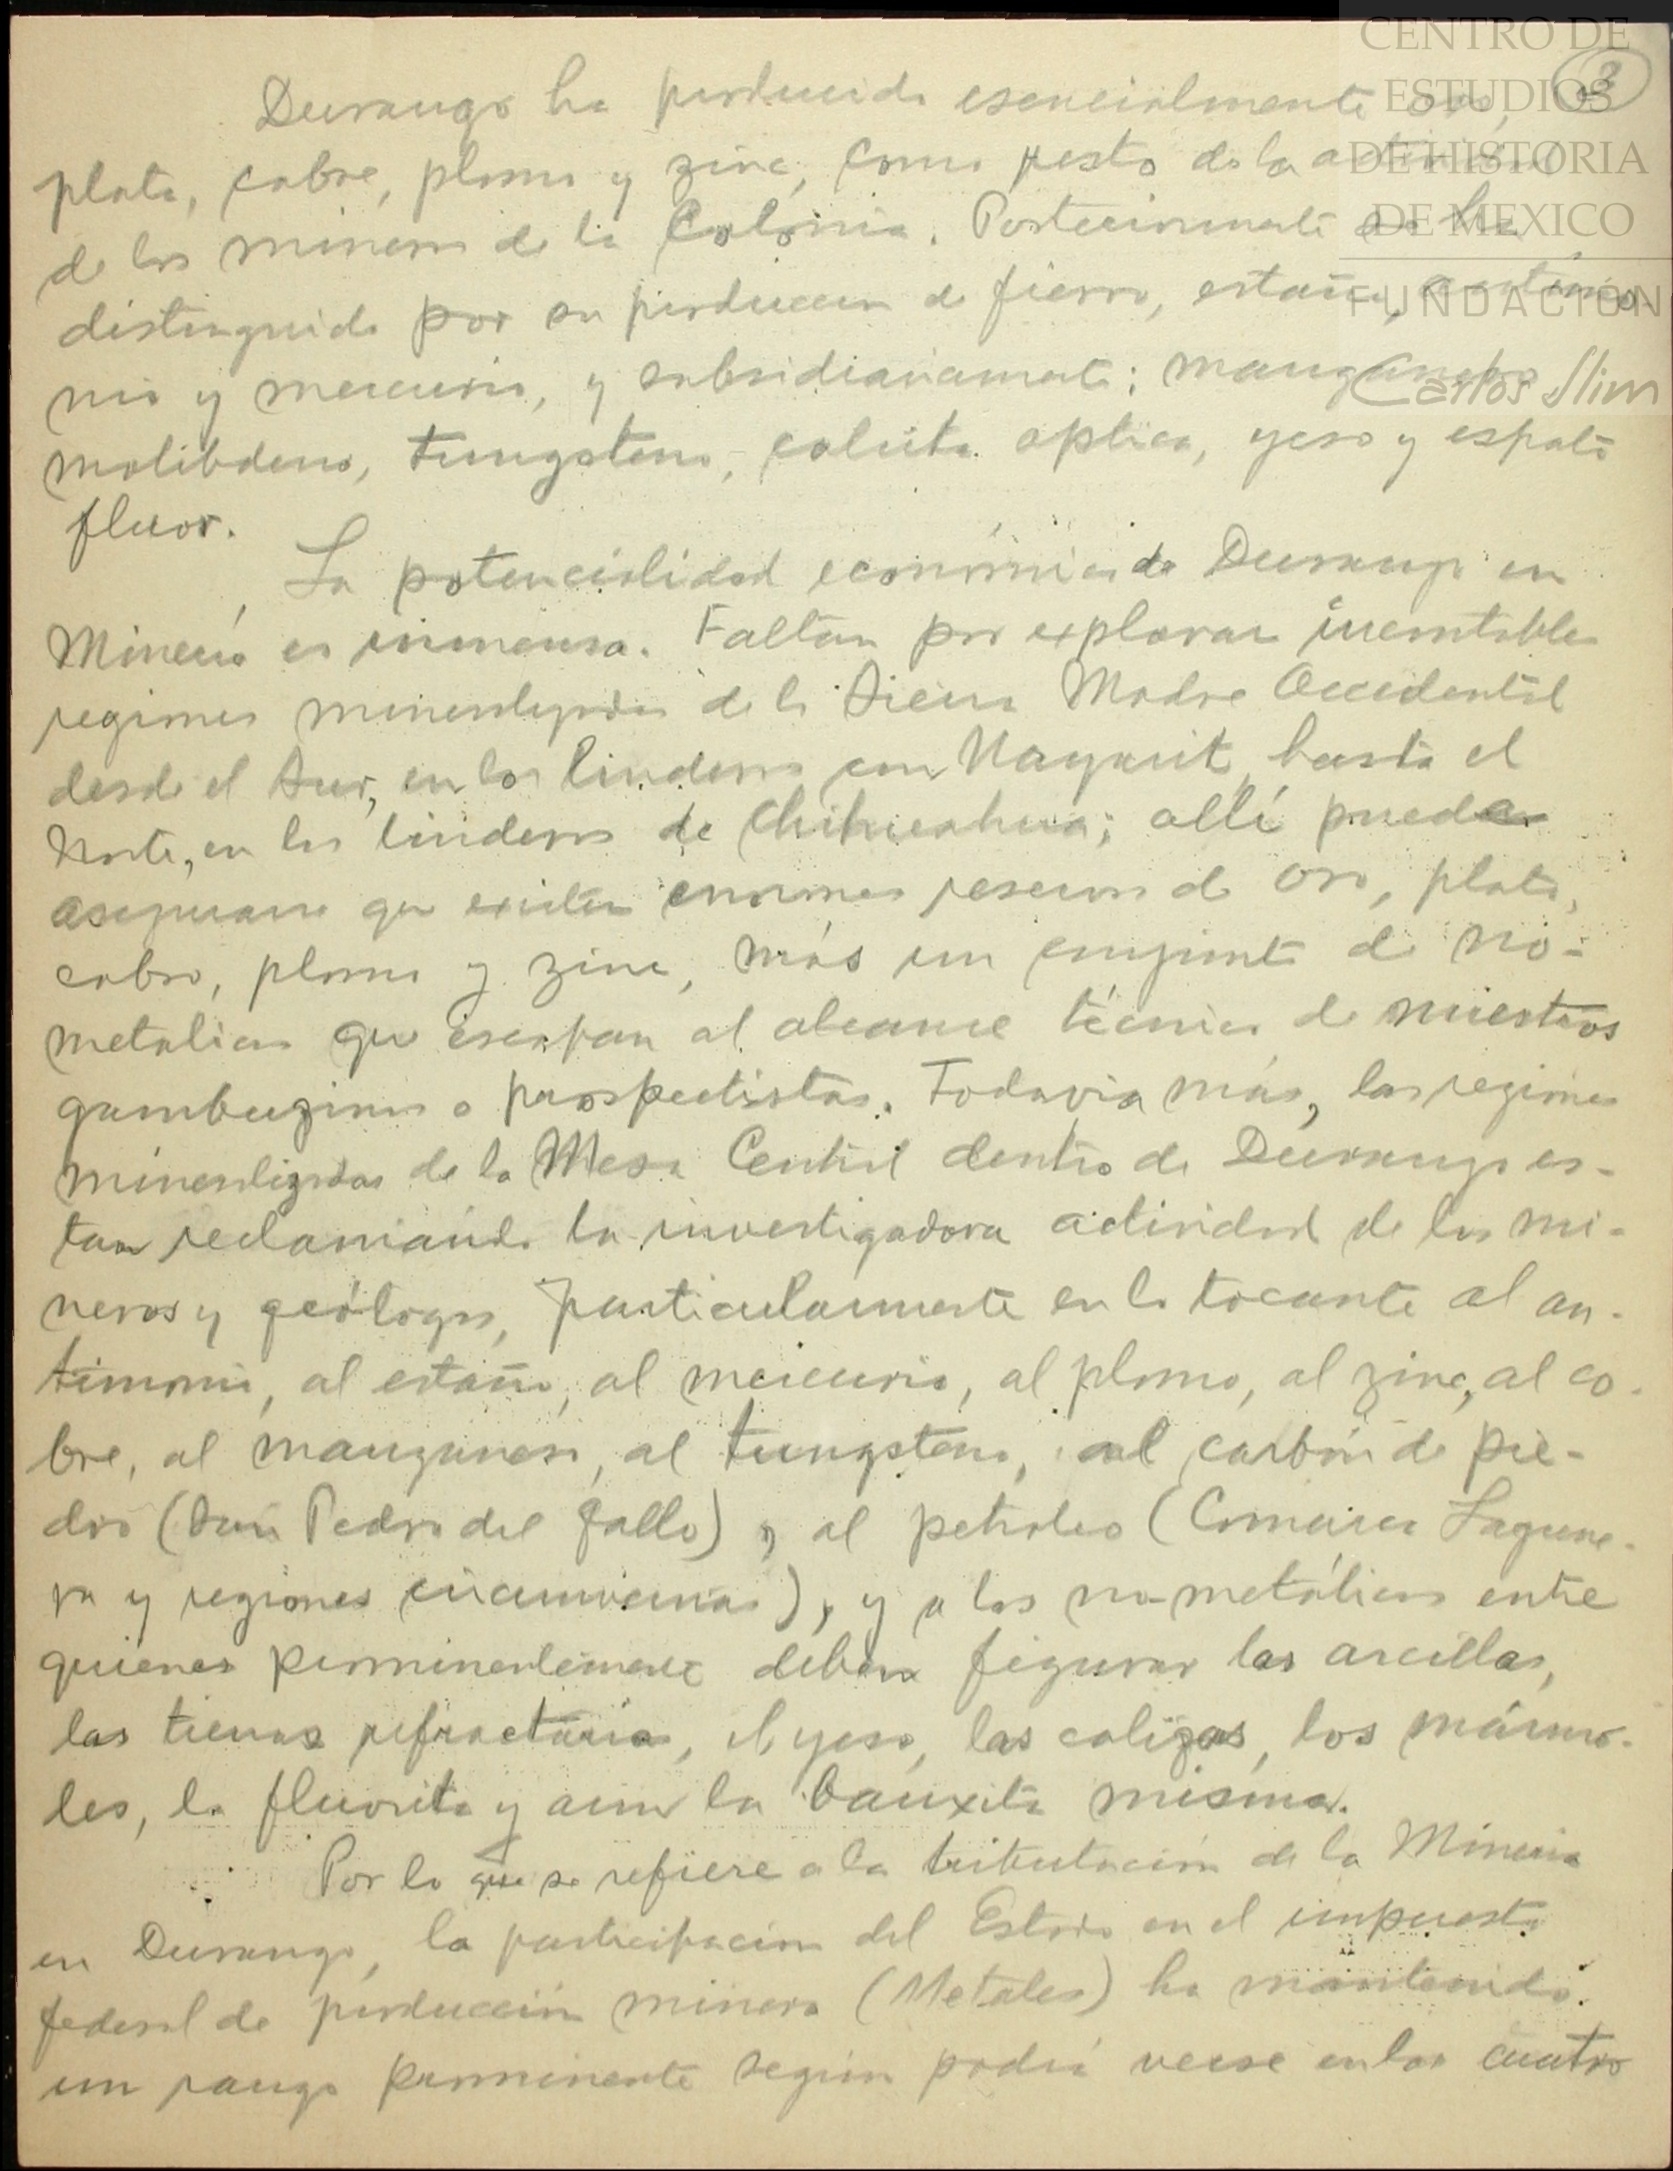 CENTRO DE
ESTUDIOS
DE HISTORIA
DE MEXICO
FUNDACION
Carlos Slim
Durango ha producido esencialmente oro,
plata, cobre, plomo y zinc, como resto de la actividad
de los mineros de la Colonia. Posteriormente se ha
distinguido por su produccion de fierro, estaño, antimo-
nio y mercurio, y subsidiariamente: manganeso
molibdeno, tungsteno, calcita optica, yeso y espato
fluor.
La potencialidad económica de Durango en
Minería es inmensa. Faltan por explorar incontables
regiones mineralizadas de la Sierra Madre Occidental
desde el Sur, en los linderos con Nayarit, hasta el
Norte, en los linderos de Chihuahua; allí puede
asegurarse que existen enormes reservas de oro, plata,
cobre, plomo y zinc, más un conjunto de no-
metalicos que escapan al alcance técnico de nuestros
gambuzinos o prospectistas. Todavia más, las regiones
mineralizadas de la Mesa Central dentro de Durango es-
tan reclamando la investigadora actividad de los mi-
neros y geólogos, particularmente en lo tocante al an-
timonio, al estaño, al mercurio, al plomo, al zinc, al co-
bre, al manganeso, al tungsteno, al carbón de pie-
dra (San Pedro del Gallo), al petroleo (Comarca Lagune-
ra y regiones circunvecinas), y a los no-metálicos entre
quienes prominentemente deben figurar las arcillas,
las tierras refractarias, el yeso, las calizas, los mármo-
les, la fluorita y aun la bauxita misma.
Por lo que se refiere a la tributación de la Mineria
en Durango, la participación del Estado en el impuesto
federal de producción minera (Metales) ha mantenido
un rango prominente según podrá verse en los cuatro